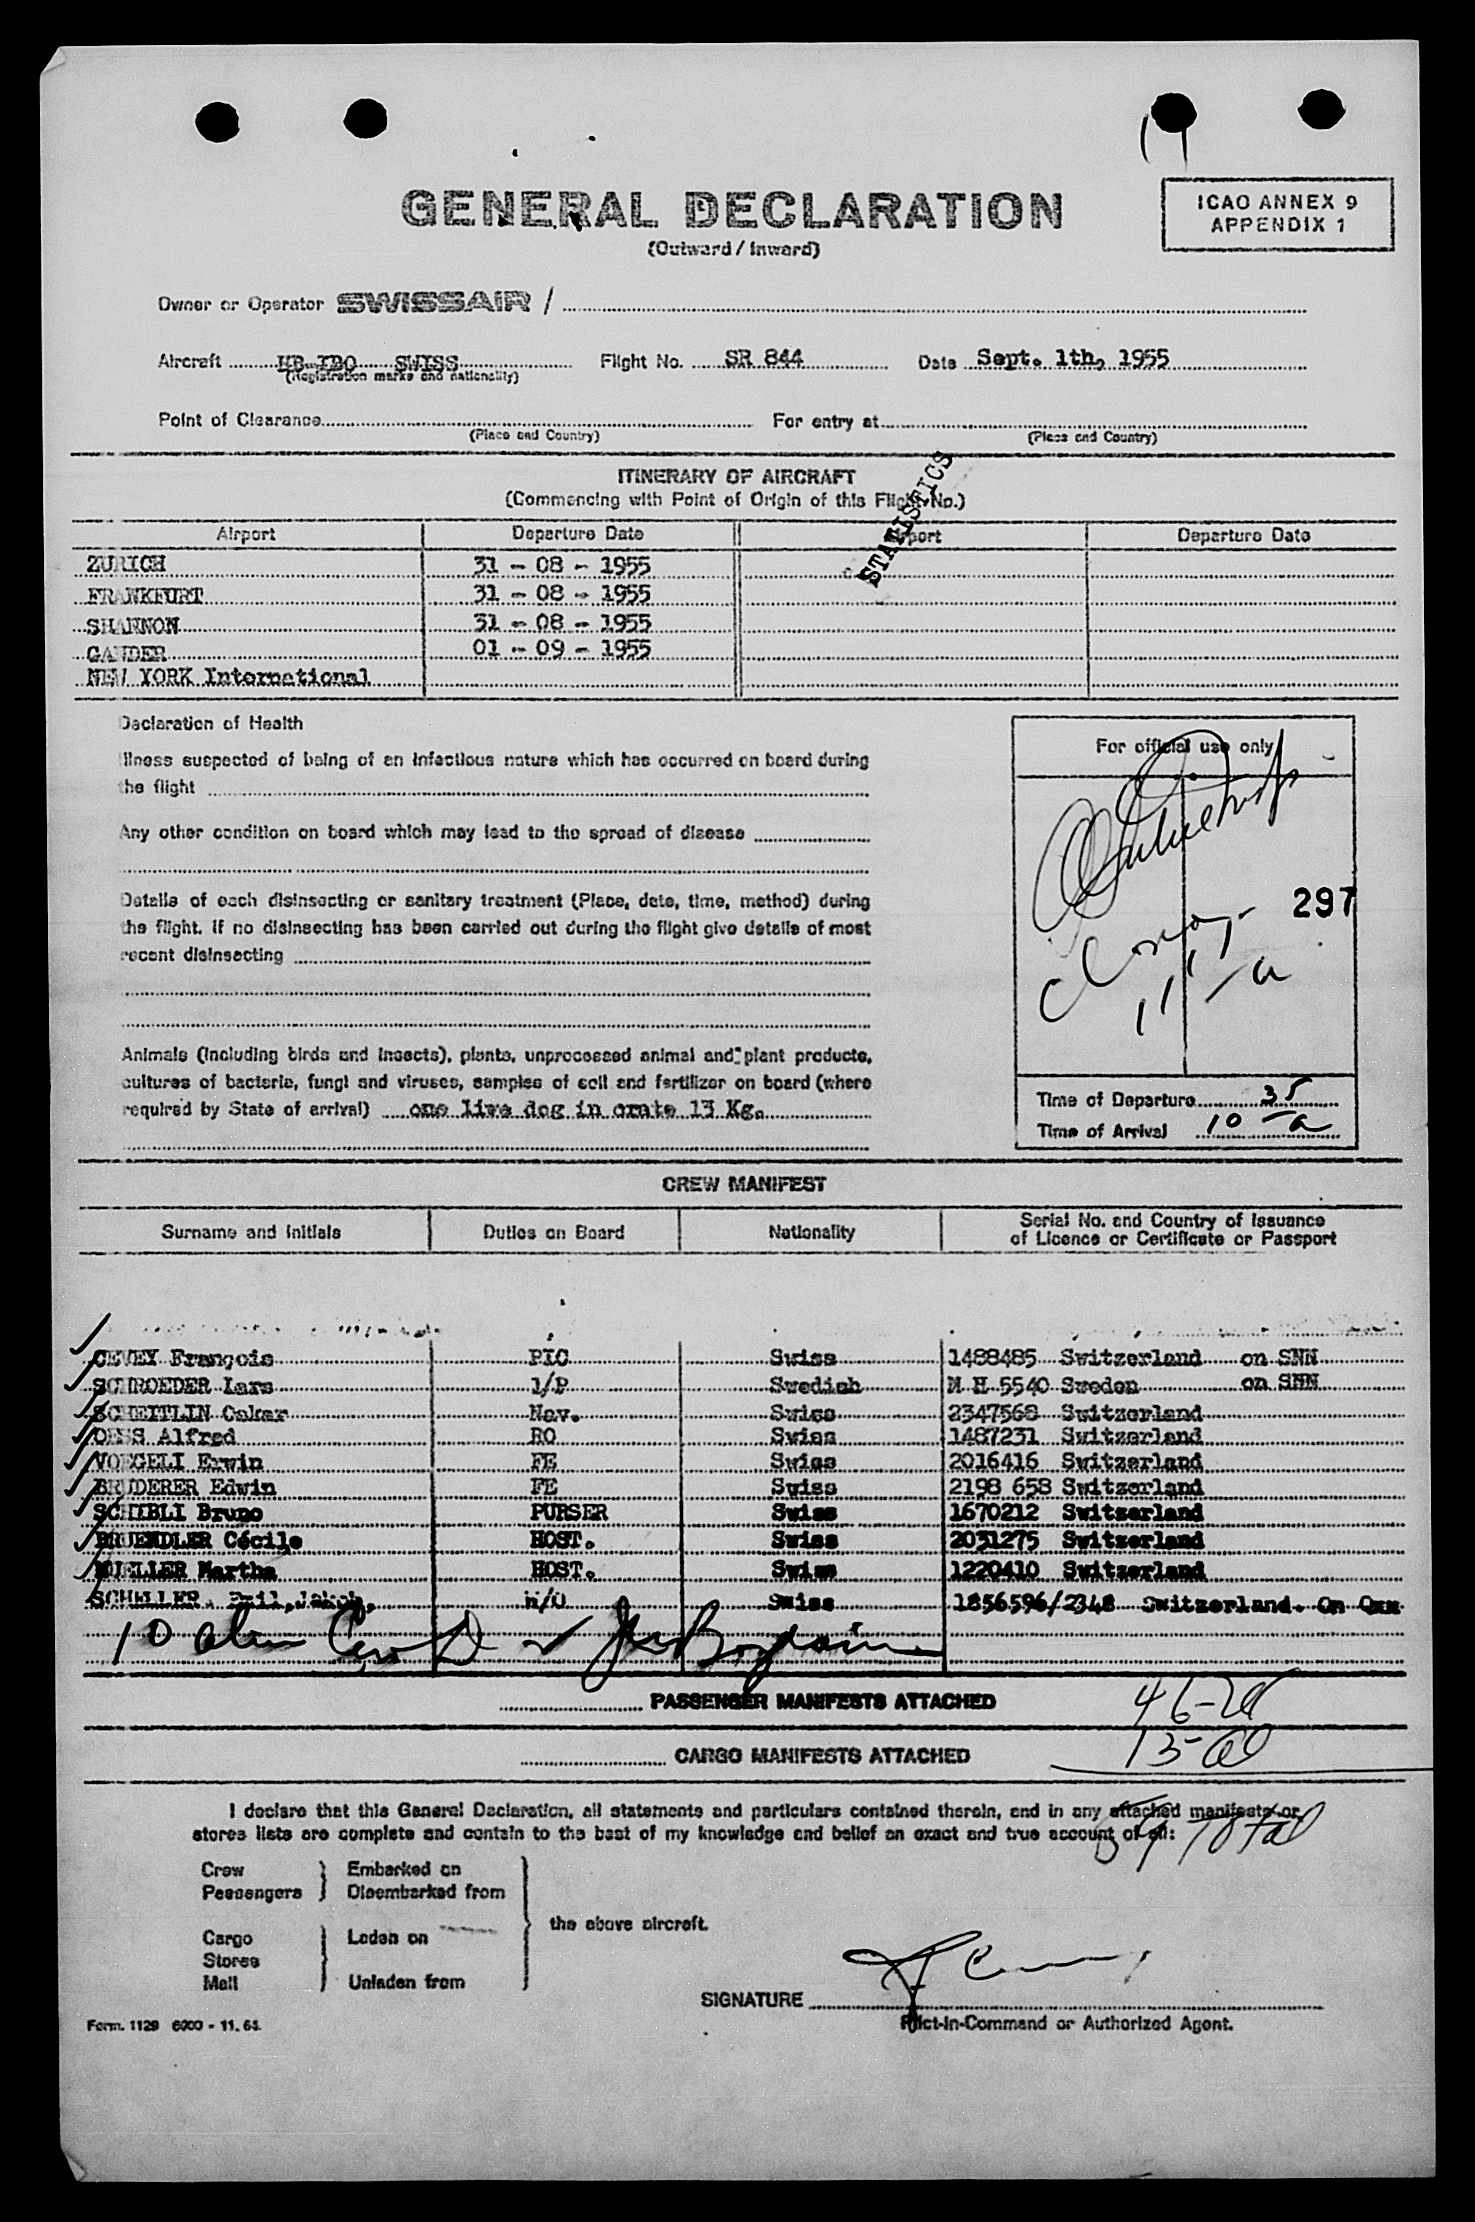 GENERAL DECLARATION
(Outward / Inward)
ICAO ANNEX 9
APPENDIX 1
Owner or Operator SWISSAIR /
Aircraft HB-IBO SWISS Flight No. SR 844 Date Sept. 1th, 1955
(Registration marks and nationality)
Point of Clearance For entry at
(Place and Country) (Place and Country)
ITINERARY OF AIRCRAFT
(Commencing with Point of Origin of this Flight No.)
STATISTICS
Airport Departure Date Airport Departure Date
ZURICH 31 - 08 - 1955
FRANKFURT 31 - 08 - 1955
SHANNON 31 - 08 - 1955
GANDER 01 - 09 - 1955
NEW YORK International
Declaration of Health
Illness suspected of being of an infectious nature which has occurred on board during
the flight
Any other condition on board which may lead to the spread of disease
Details of each disinsecting or sanitary treatment (Place, date, time, method) during
the flight. If no disinsecting has been carried out during the flight give details of most
recent disinsecting
Animals (including birds and insects), plants, unprocessed animal and plant products,
cultures of bacteria, fungi and viruses, samples of soil and fertilizer on board (where
required by State of arrival) one live dog in crate 13 Kg.
For official use only
297
Time of Departure 35
Time of Arrival 10 - a
CREW MANIFEST
Surname and Initials Duties on Board Nationality Serial No. and Country of Issuance
of Licence or Certificate or Passport
CEVEY François PIC Swiss 1488485 Switzerland on SNN
SCHROEDER Lars 1/P Swedish M H 5540 Sweden on SNN
SCHEITLIN Oskar Nav. Swiss 2347568 Switzerland
OENS Alfred RO Swiss 1487231 Switzerland
VOEGELI Erwin FE Swiss 2016416 Switzerland
BRUDERER Edwin FE Swiss 2198 658 Switzerland
SCHIBLI Bruno PURSER Swiss 1670212 Switzerland
BRUENDLER Cécile HOST. Swiss 2031275 Switzerland
MUELLER Martha HOST. Swiss 1220410 Switzerland
SCHELLER. Emil, Jakob. Swiss 1856596/2348 Switzerland. On
10 alien Crew
PASSENGER MANIFESTS ATTACHED 46-
CARGO MANIFESTS ATTACHED 15-
I declare that this General Declaration, all statements and particulars contained therein, and in any attached manifests or
stores lists are complete and contain to the best of my knowledge and belief an exact and true account of all:
Total
Crew Embarked on
Passengers Disembarked from
the above aircraft.
Cargo Loden on
Stores
Mail Unladen from
SIGNATURE
Pilot-in-Command or Authorized Agent.
Form. 1129 6000 - 11. 53.